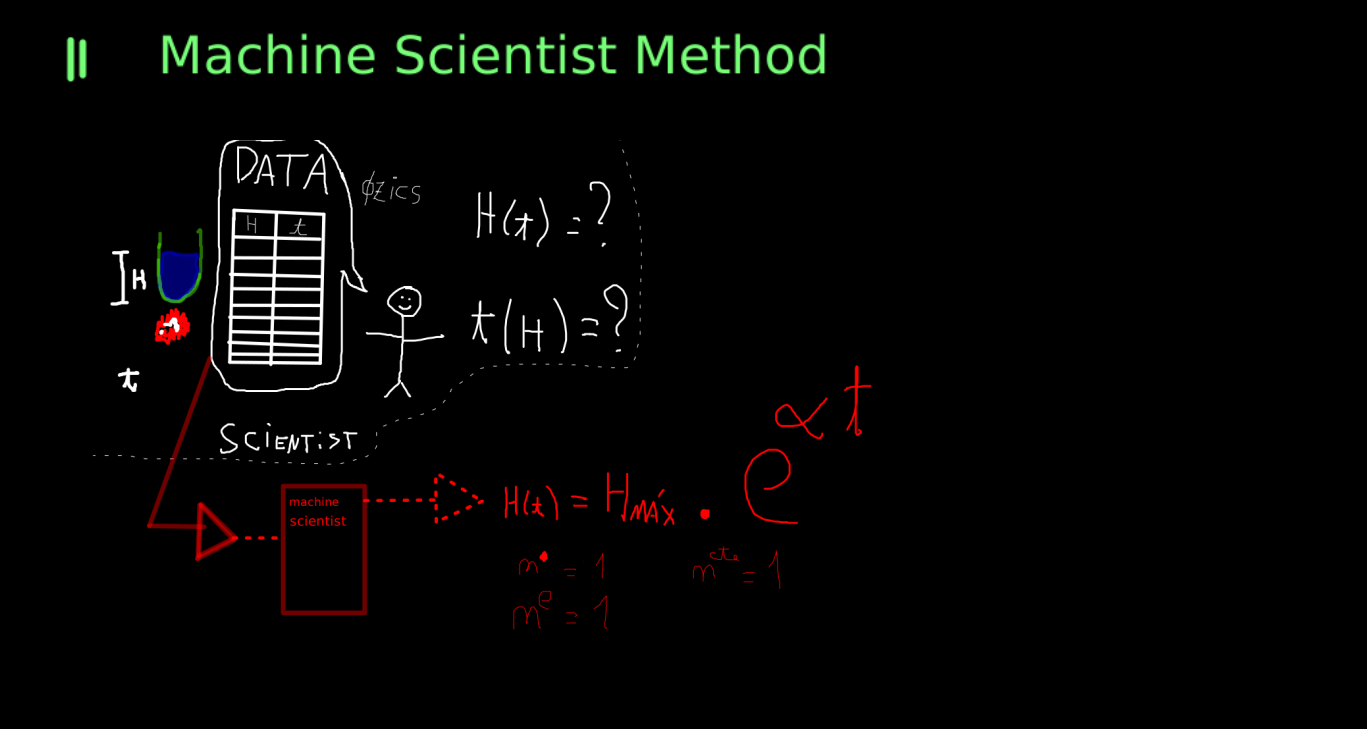 II Machine Scientist Method
DATA
H t
ϕzics
H(t) = ?
H
t(H) = ?
t
SCiENTiST
machine
scientist
H(t) = HMÁX · e^αt
m^• = 1
m^cte = 1
m^e = 1